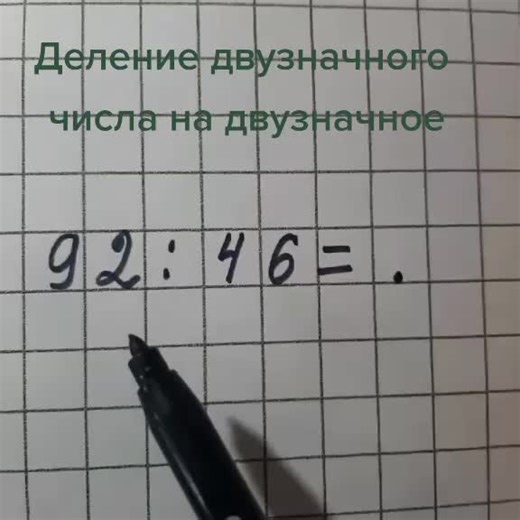 Деление двузначного
числа на двузначное
92 : 46 = .